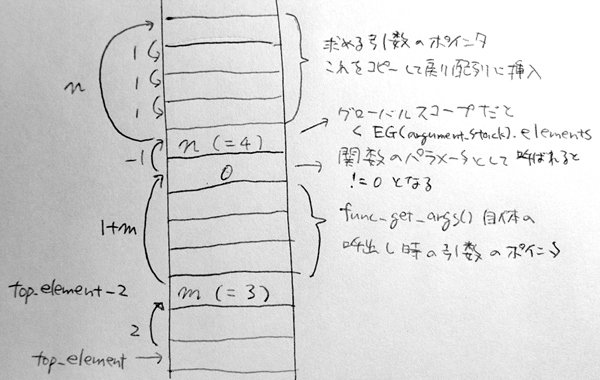 求める引数のポインタ
これをコピーして戻り配列に挿入
n
1
1
1
n (=4)
グローバルスコープだと
< EG(argument_stack).elements
-1
0
関数のパラメータとして呼ばれると
!=0 となる
1+m
func_get_args() 自体の
呼出し時の引数のポインタ
top_element-2
m (=3)
2
top_element